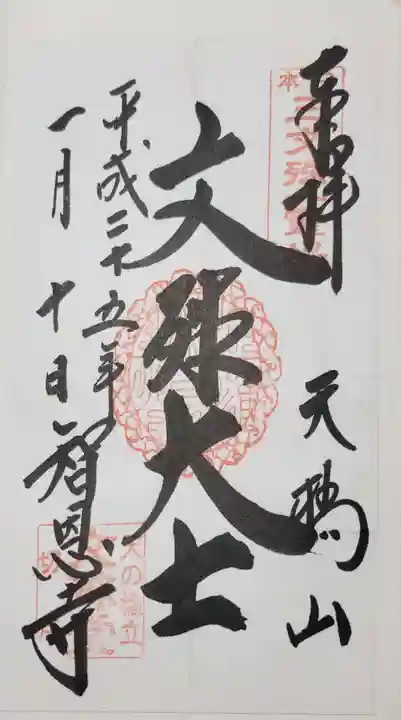 奉拝
天橋山
文殊大士
平成二十五年
一月十日
智恩寺
本
三文殊
天の橋立